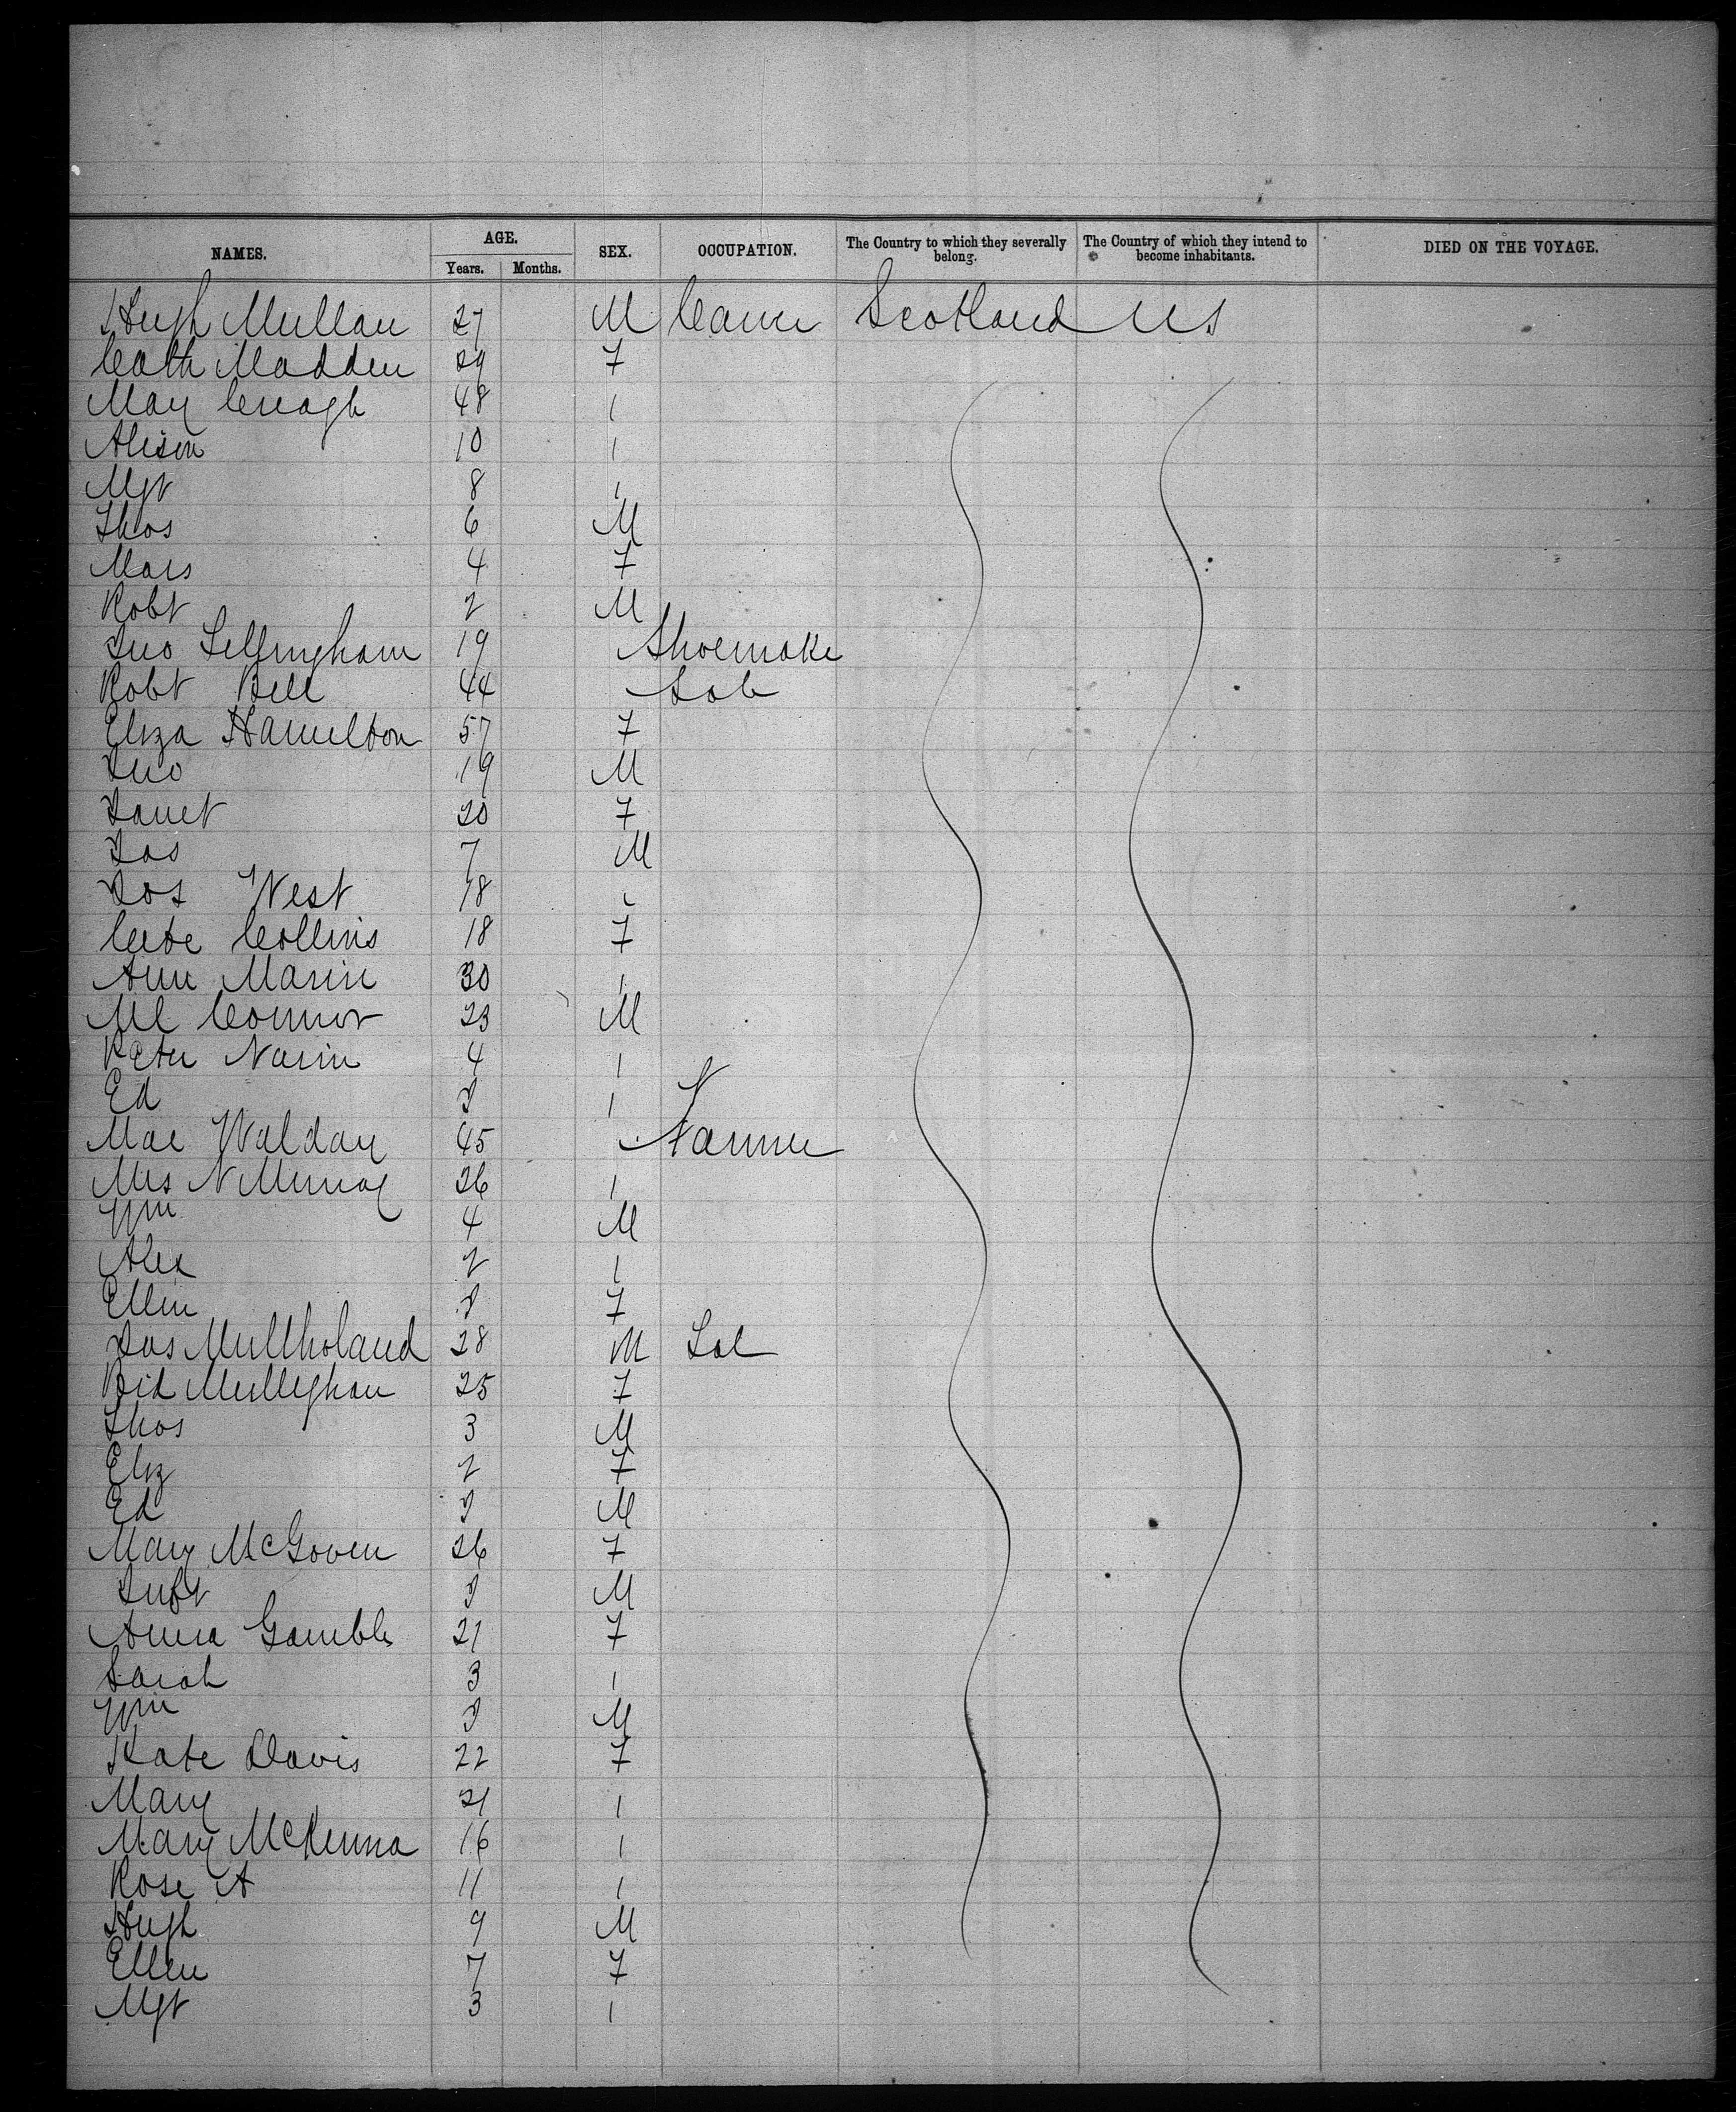 NAMES. AGE. SEX. OCCUPATION. The Country to which they severally belong. The Country of which they intend to become inhabitants. DIED ON THE VOYAGE.
Years. Months.
Hugh Mullan 27 M Scotland US
Cath Madden 29 F
Mary Creagh 48 "
Alison 10 "
Mgt 8 "
Thos 6 M
Mars 4 F
Robt 2 M
Jno 19 Shoemake
Robt Bell 44 Lab
Eliza Hamilton 57 F
Jno 19 M
Janet 20 F
Jas 7 M
Jos West 18 "
Cate Collins 18 F
Ann Marin 30 "
Ml Connor 23 M
Peter Narin 4 "
Ed "
Mae Walday 45 Farmer
Mrs N Murray 26 "
Wm 4 M
Alex 2 "
Ellen F
Jas Mullholand 28 M Lab
Bid Mulleghan 25 F
Thos 3 M
Eliz 2 F
Ed M
Mary McGoven 26 F
Inft M
Anna Gamble 21 F
Sarah 3 "
Wm M
Kate Davis 22 F
Mary 21 "
Mary McKenna 16 "
Rose A 11 "
Hugh 9 M
Ellen 7 F
Mgt 3 "